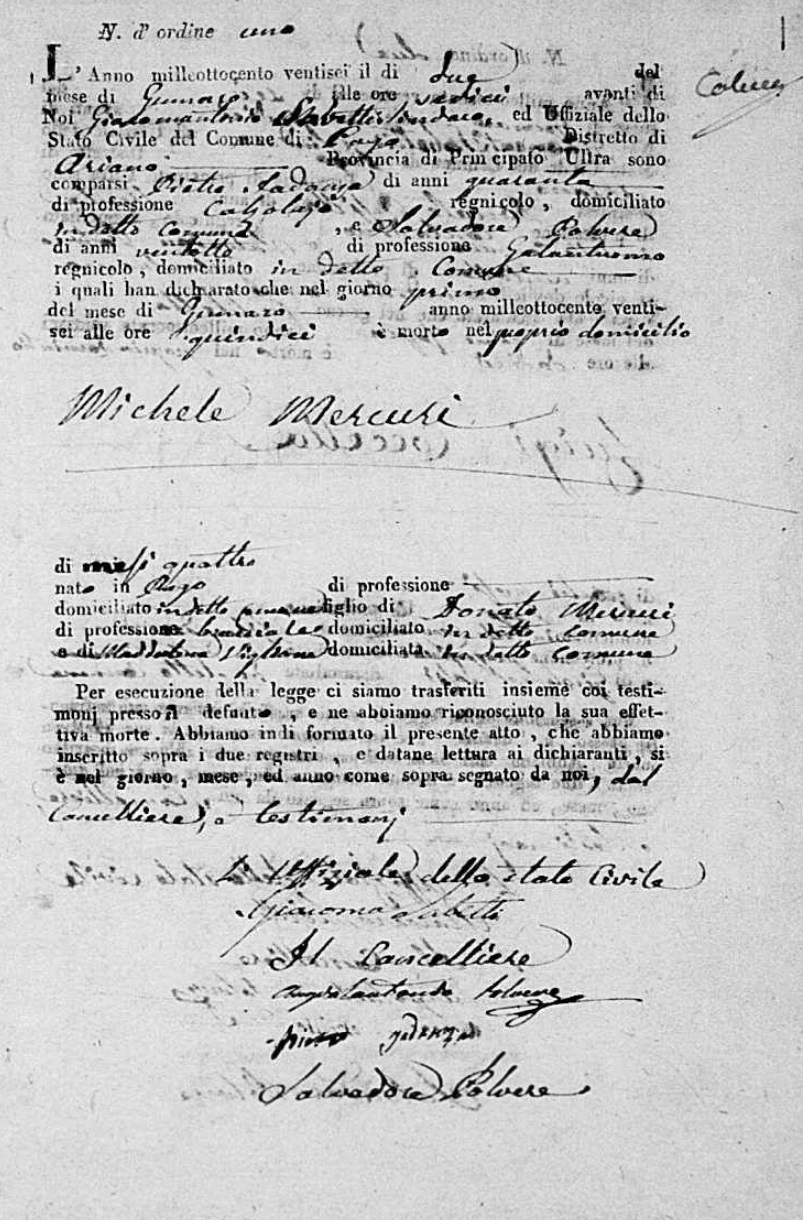 N. d' ordine uno
L'Anno milleottocento ventisei il di due del
mese di Gennaro alle ore sedici avanti di
Noi Giacomantonio Sabetti Sindaco, ed Uffiziale dello
Stato Civile del Comune di Distretto di
Ariano Provincia di Principato Ultra sono
comparsi Pietro di anni quaranta
di professione Calzolajo regnicolo, domiciliato
in detto Comune, e Salvadore Polvere
di anni ventotto di professione Galantuomo
regnicolo, domiciliato in detto Comune
i quali han dichiarato che nel giorno primo
del mese di Gennaro anno milleottocento venti-
sei alle ore quindici è morto nel proprio domicilio
Michele Mercuri
di mesi quattro
nato in di professione
domiciliato in detto comune figlio di Donato Mercuri
di professione bracciale domiciliato in detto Comune
e di Maddalena domiciliata in detto Comune
Per esecuzione della legge ci siamo trasferiti insieme coi testi-
monj presso il defunto, e ne abbiamo riconosciuto la sua effet-
tiva morte. Abbiamo indi formato il presente atto, che abbiamo
inscritto sopra i due registri, e datane lettura ai dichiaranti, si
è nel giorno, mese, ed anno come sopra segnato da noi, dal
Cancelliere, e testimonj
L'Uffiziale dello stato Civile
Giacomo Sabetti
Il Cancelliere
Polvere
Salvadore Polvere